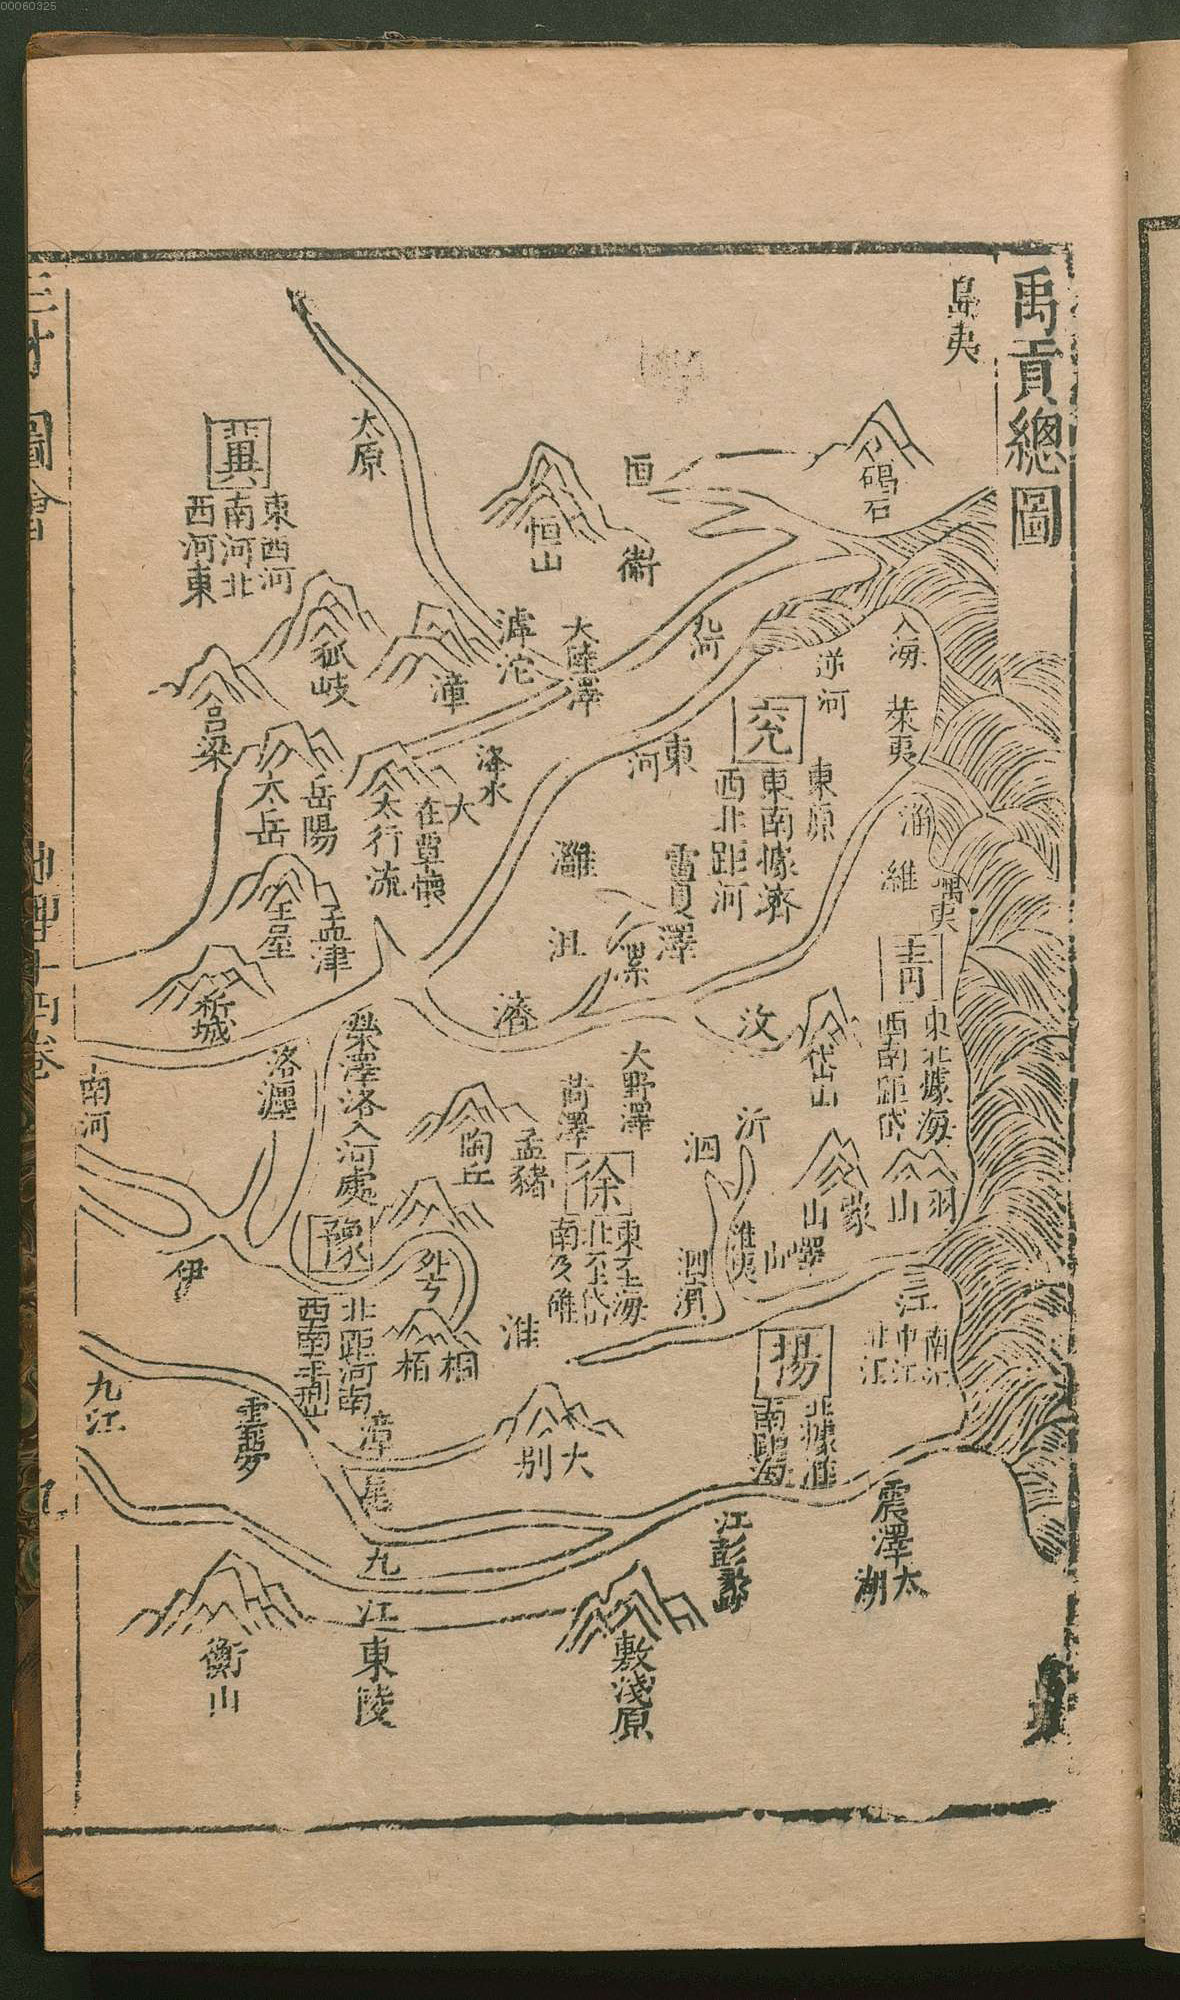 00060325
禹貢總圖
島夷
碣石
恒
衛
恒山
太原
冀
東西河
南河北
西河東
狐岐
呂梁
漳
滹沱
大陸澤
九河
逆河
入海
萊夷
兖
東南據濟
西北距河
東原
東河
洚水
大
在覃懷
太行
流
岳陽
太岳
王屋
孟津
析城
灉
沮
雷夏澤
漯
濟
汶
岱山
淄
維
嵎夷
青
東北據海
西南距岱
羽山
蒙山
嶧山
沂
泗
淮夷
泗濱
大野澤
菏澤
孟豬
陶丘
徐
東至海
北至岱
南及淮
滎澤洛入河處
洛瀍
南河
伊
豫
北距河南
外方
桐柏
淮
大別
江
南江
中江
北江
揚
北據淮
南距海
震澤太湖
江彭蠡
敷淺原
九江東陵
衡山
九江
雲夢
漳
尾
三才圖會
地理十四卷
九